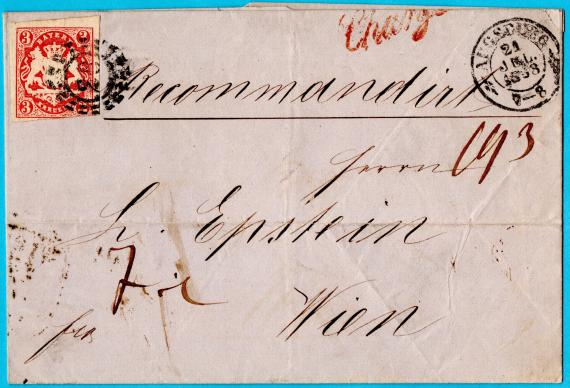 3 BAYERN 3
3 KREUZER 3
Chargé
AUGSBURG
21
JUL
7-8
Recommandirt
Herrn 693
L. Epstein
Wien
fco